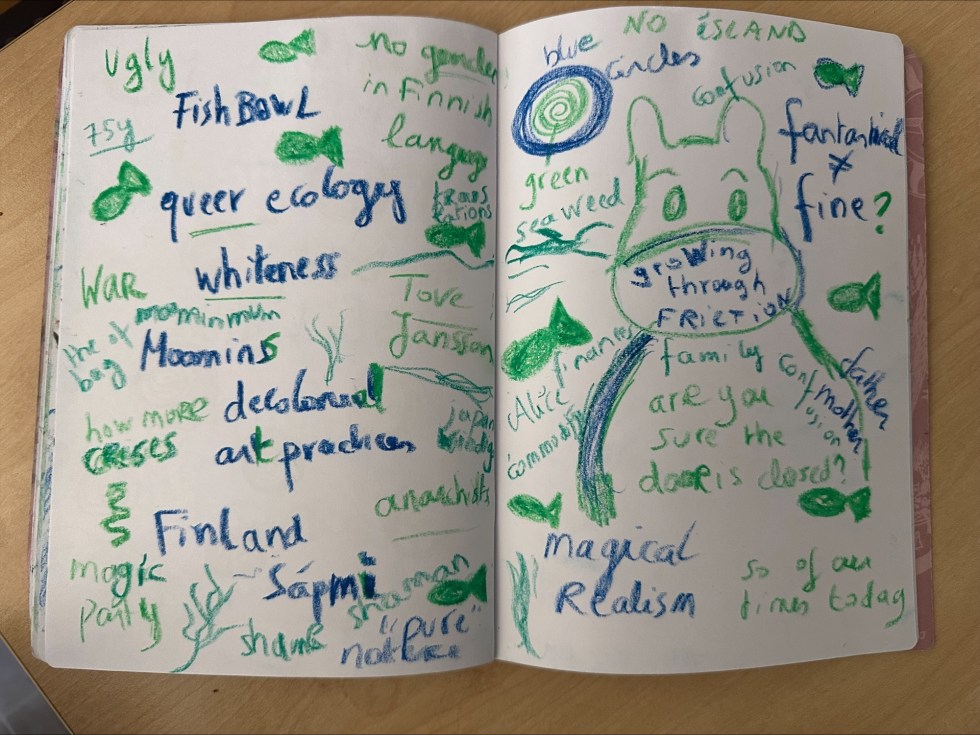 Ugly
FishBowl
75y
queer ecology
whiteness
War
mominmum
the
bag
Moomins
how more
crises
decolonial
art practices
Finland
magic
party
Sápmi
shame
shaman
"pure"
nature
no gender
in Finnish
language
trans
lations
Tove
Jansson
japan
anarchists
NO iSLAND
blue
circles
confusion
green
seaweed
fantastical
≠
fine?
growing
through
FRICTION
finances
Alice
commodity
family
are you
sure the
door is closed?
confusion
father
mother
magical
Realism
so of our
times today